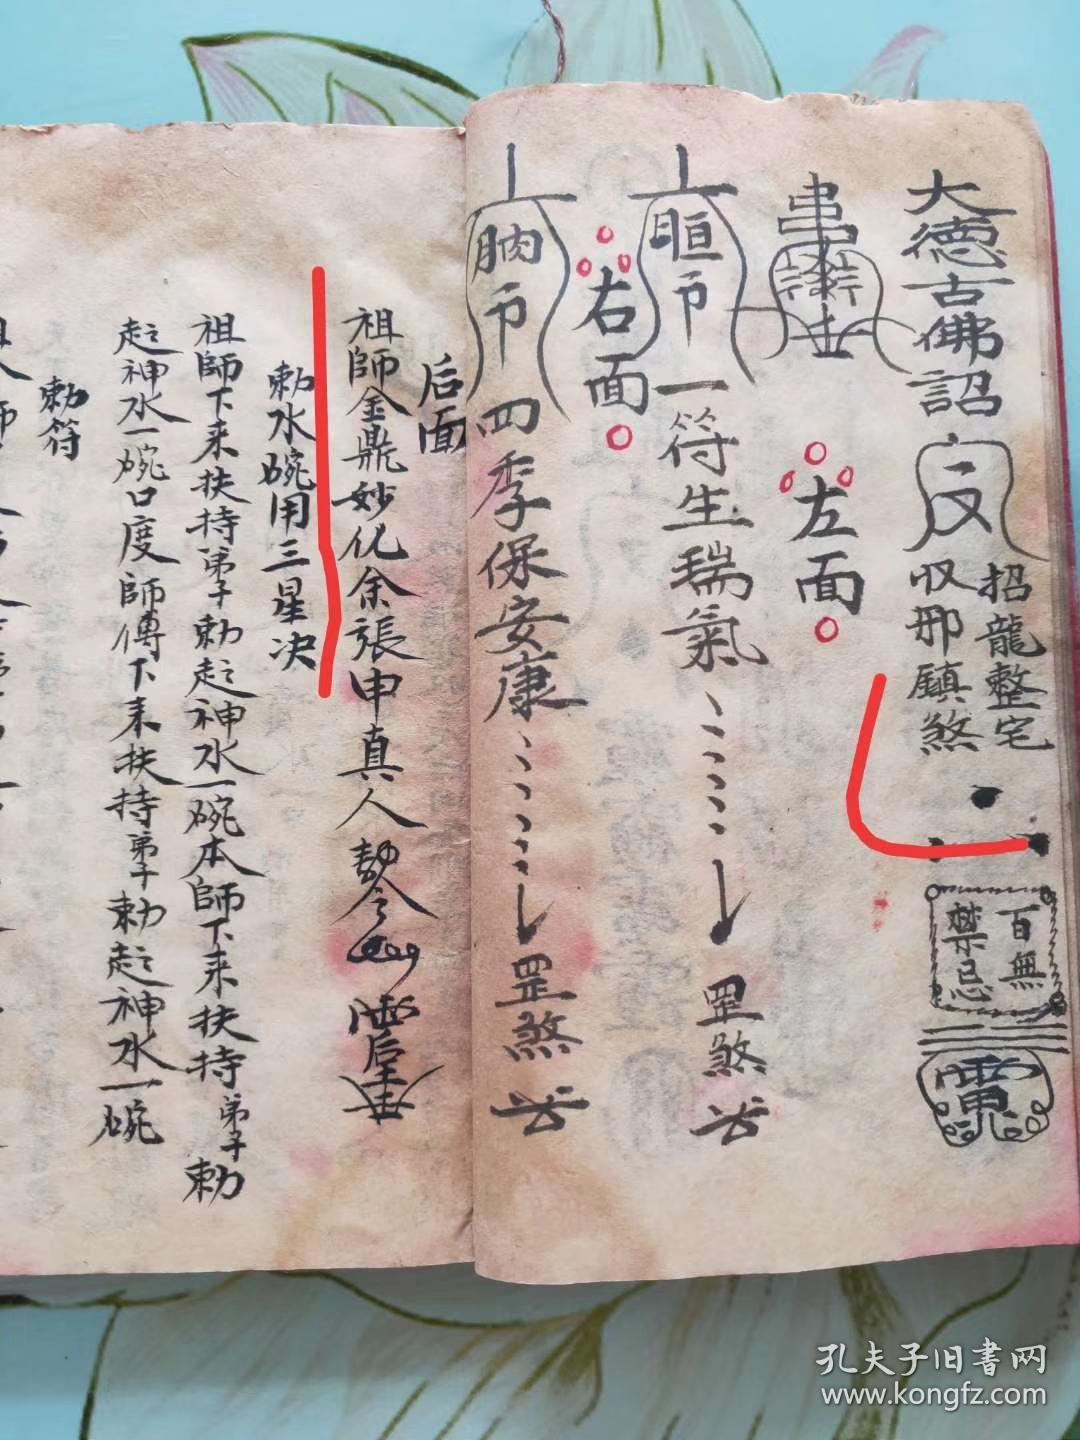 大德古佛詔
招龍整宅
收邪鎮煞
百無
禁忌
左面
一符生瑞氣
罡煞
右面
四季保安康
罡煞
后面
祖師金鼎妙化余張申真人
勅水碗用三星决
祖師下来扶持弟子勅起神水一碗本師下来扶持弟子勅
起神水一碗口度師傳下来扶持弟子勅起神水一碗
勅符
孔夫子旧書网
www.kongfz.com